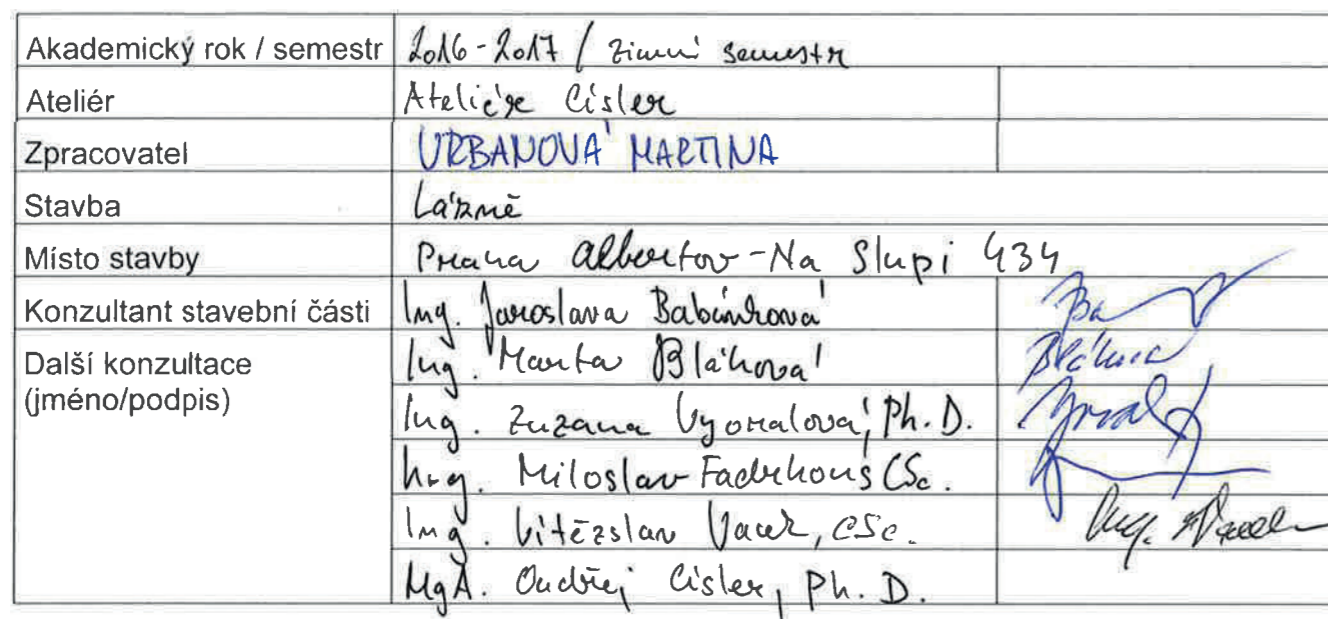 Akademický rok / semestr 2016-2017 / zimní semestr
Ateliér Ateliér Císler
Zpracovatel URBANOVÁ MARTINA
Stavba Lázně
Místo stavby Praha Albertov - Na Slupi 434
Konzultant stavební části Ing. Jaroslava Babánková
Další konzultace Ing. Marta Bláhová
(jméno/podpis) Ing. Zuzana Vyoralová, Ph.D.
Ing. Miloslav Smutek CSc.
Ing. Vítězslav Vacek, CSc.
MgA. Ondřej Císler, Ph.D.